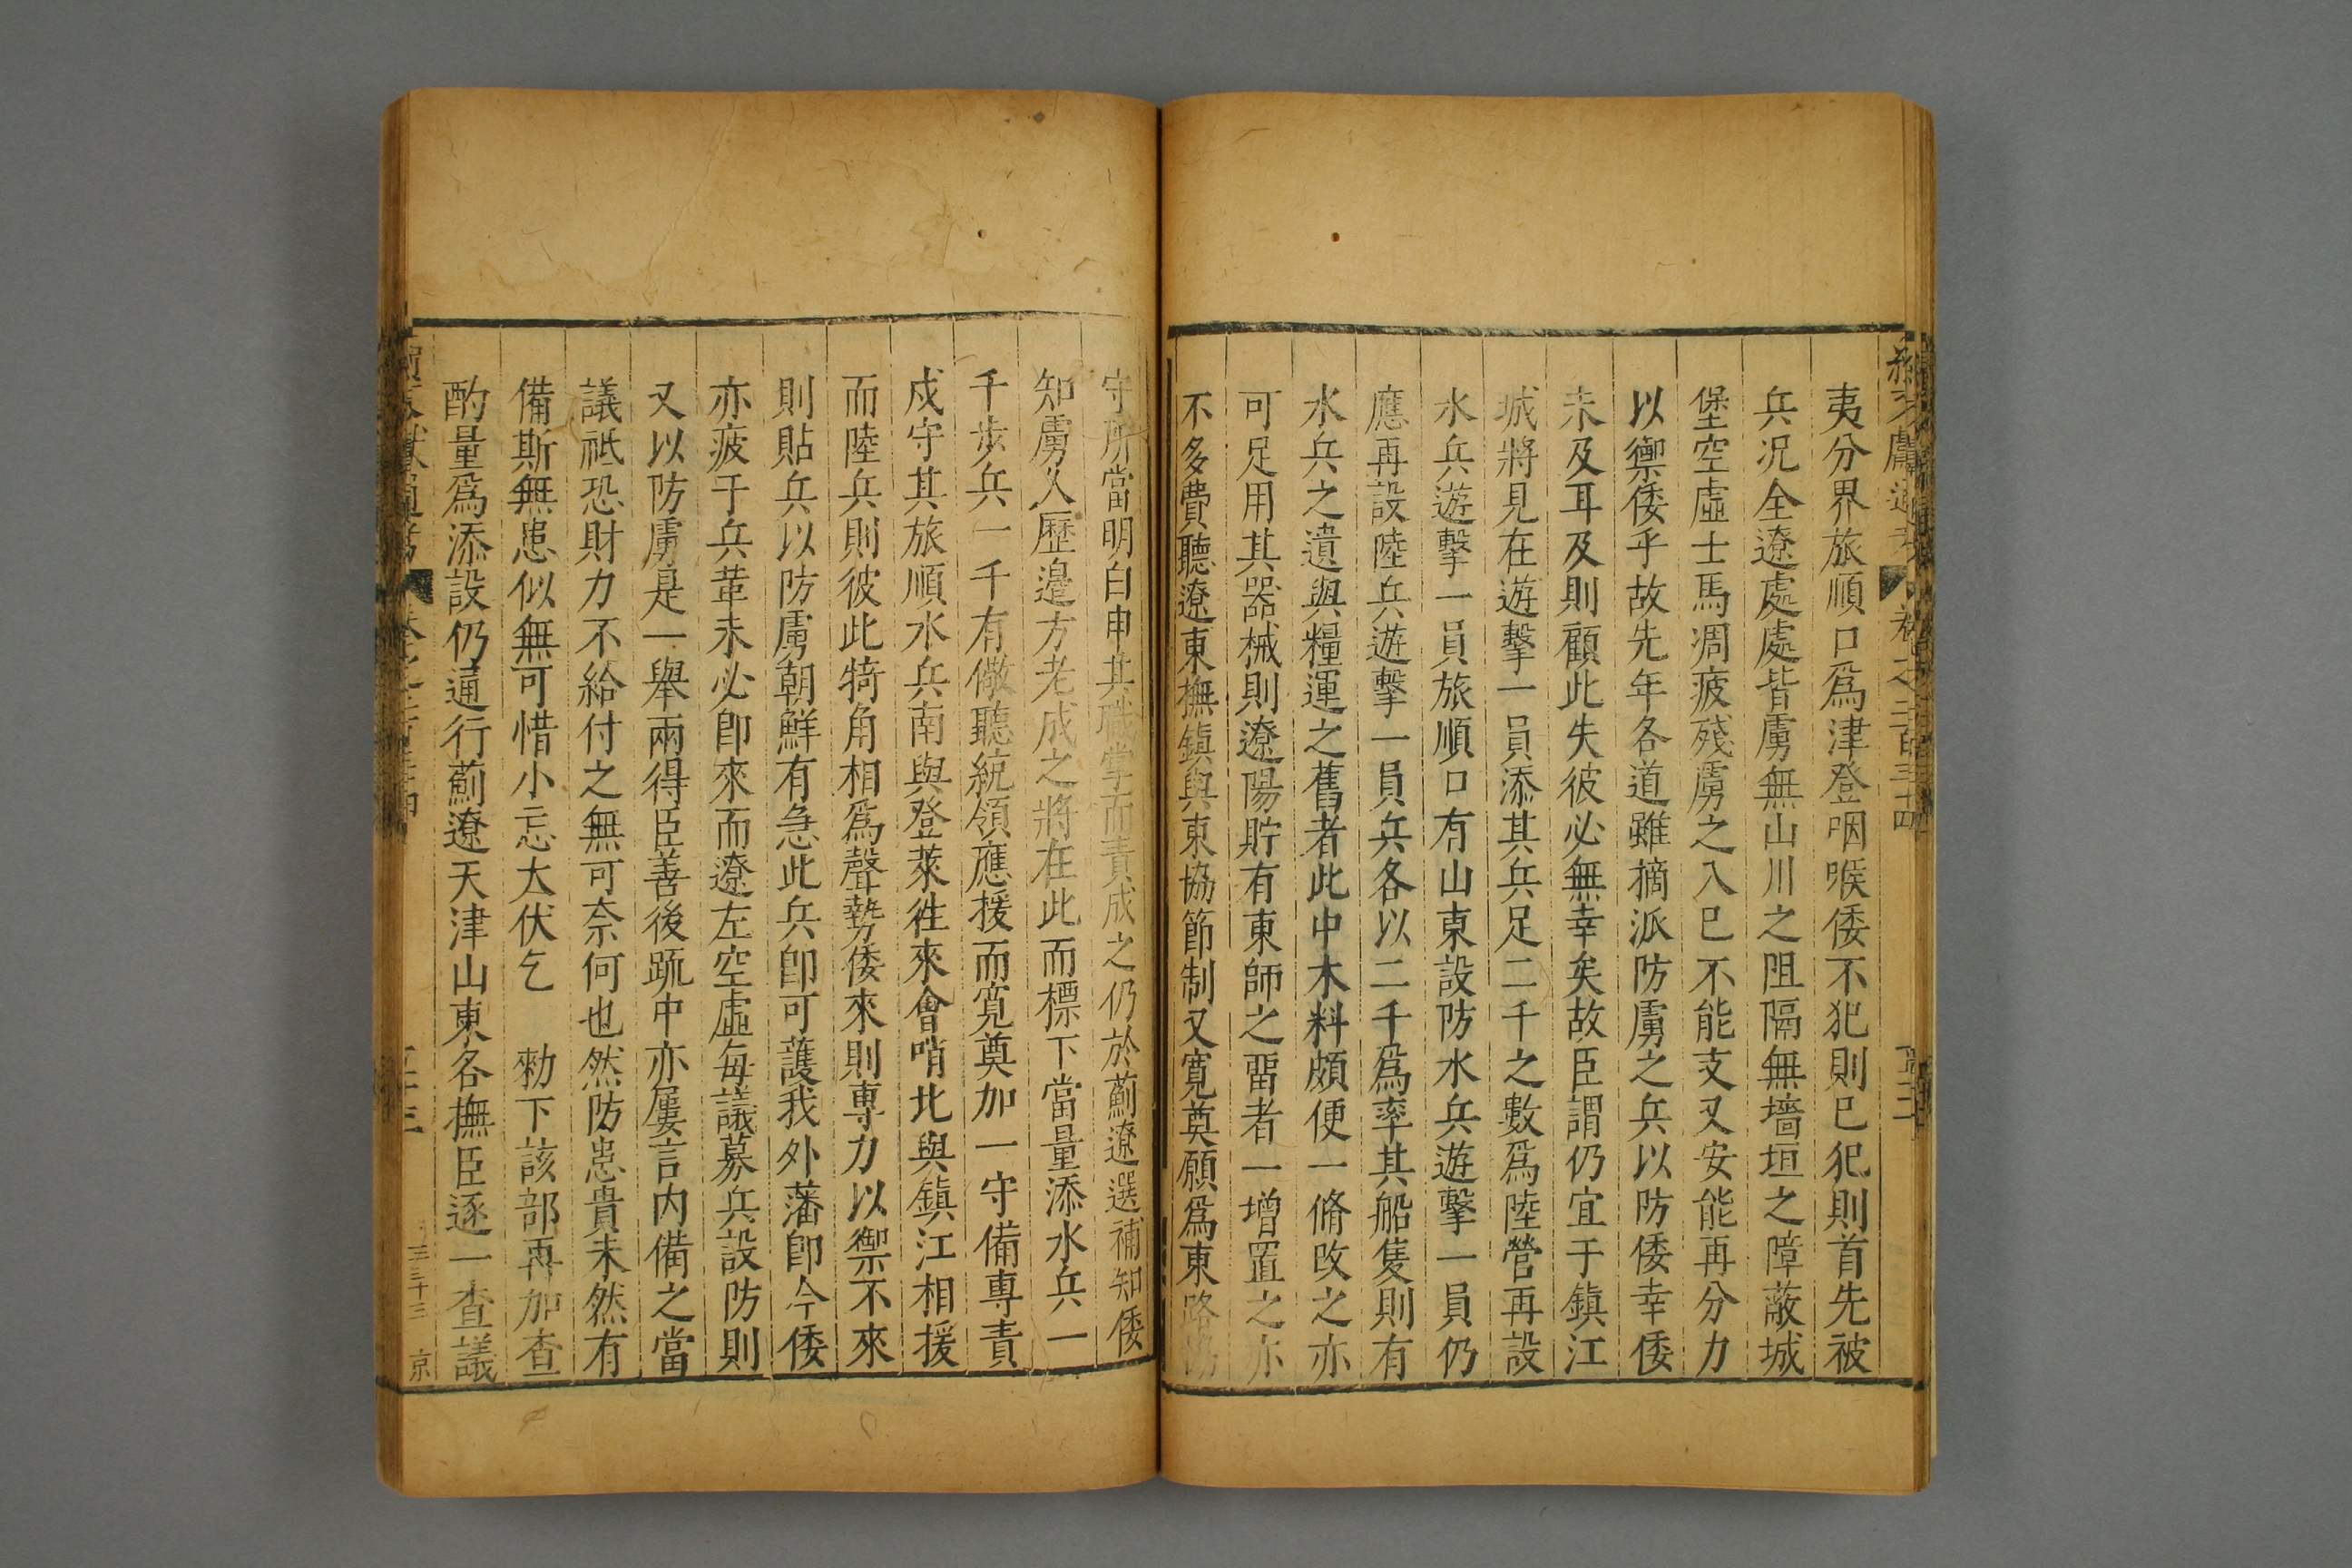 夷分界旅順口爲津登咽喉倭不犯則已犯則首先被
兵况全遼處處皆虜無山川之阻隔無墻垣之障蔽城
堡空虛士馬凋疲殘虜之入已不能支又安能再分力
以禦倭乎故先年各道雖摘派防虜之兵以防倭幸倭
未及耳及則顧此失彼必無幸矣故臣謂仍宜于鎮江
城將見在遊擊一員添其兵足二千之數爲陸營再設
水兵遊擊一員旅順口有山東設防水兵遊擊一員仍
應再設陸兵遊擊一員兵各以二千爲率其船隻則有
水兵之遺與糧運之舊者此中木料頗便一脩改之亦
可足用其器械則遼陽貯有東師之畱者一增置之亦
不多費聽遼東撫鎮與東協節制又寬奠願爲東路協
守所當明白申其職掌而責成之仍於薊遼選補知倭
知虜久歷邉方老成之將在此而標下當量添水兵一
千步兵一千有儆聽統領應援而寬奠加一守備專責
戍守其旅順水兵南與登萊徃來會哨北與鎮江相援
而陸兵則彼此犄角相爲聲勢倭來則專力以禦不來
則貼兵以防虜朝鮮有急此兵卽可護我外藩卽今倭
亦疲于兵革未必卽來而遼左空虛每議募兵設防則
又以防虜是一舉兩得臣善後䟽中亦屢言内備之當
議祗恐財力不給付之無可奈何也然防患貴未然有
備斯無患似無可惜小忘大伏乞　勑下該部再加查
酌量爲添設仍通行薊遼天津山東各撫臣逐一查議